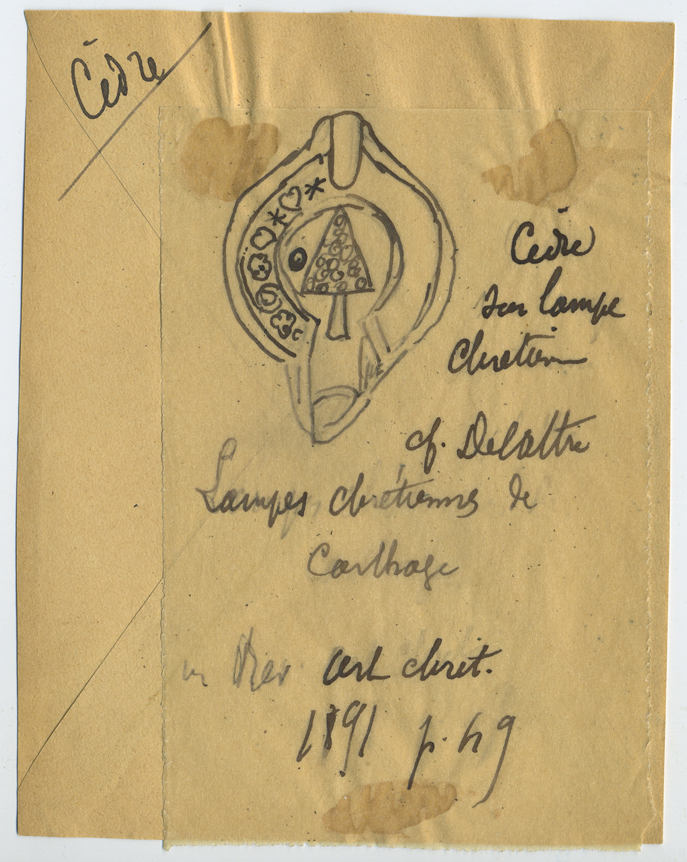 Cèdre
Cèdre
sur lampe
chretienn
cf. Delattre
Lampes chrétiennes de
Carthage
in Rev art chret.
1891 p. 49